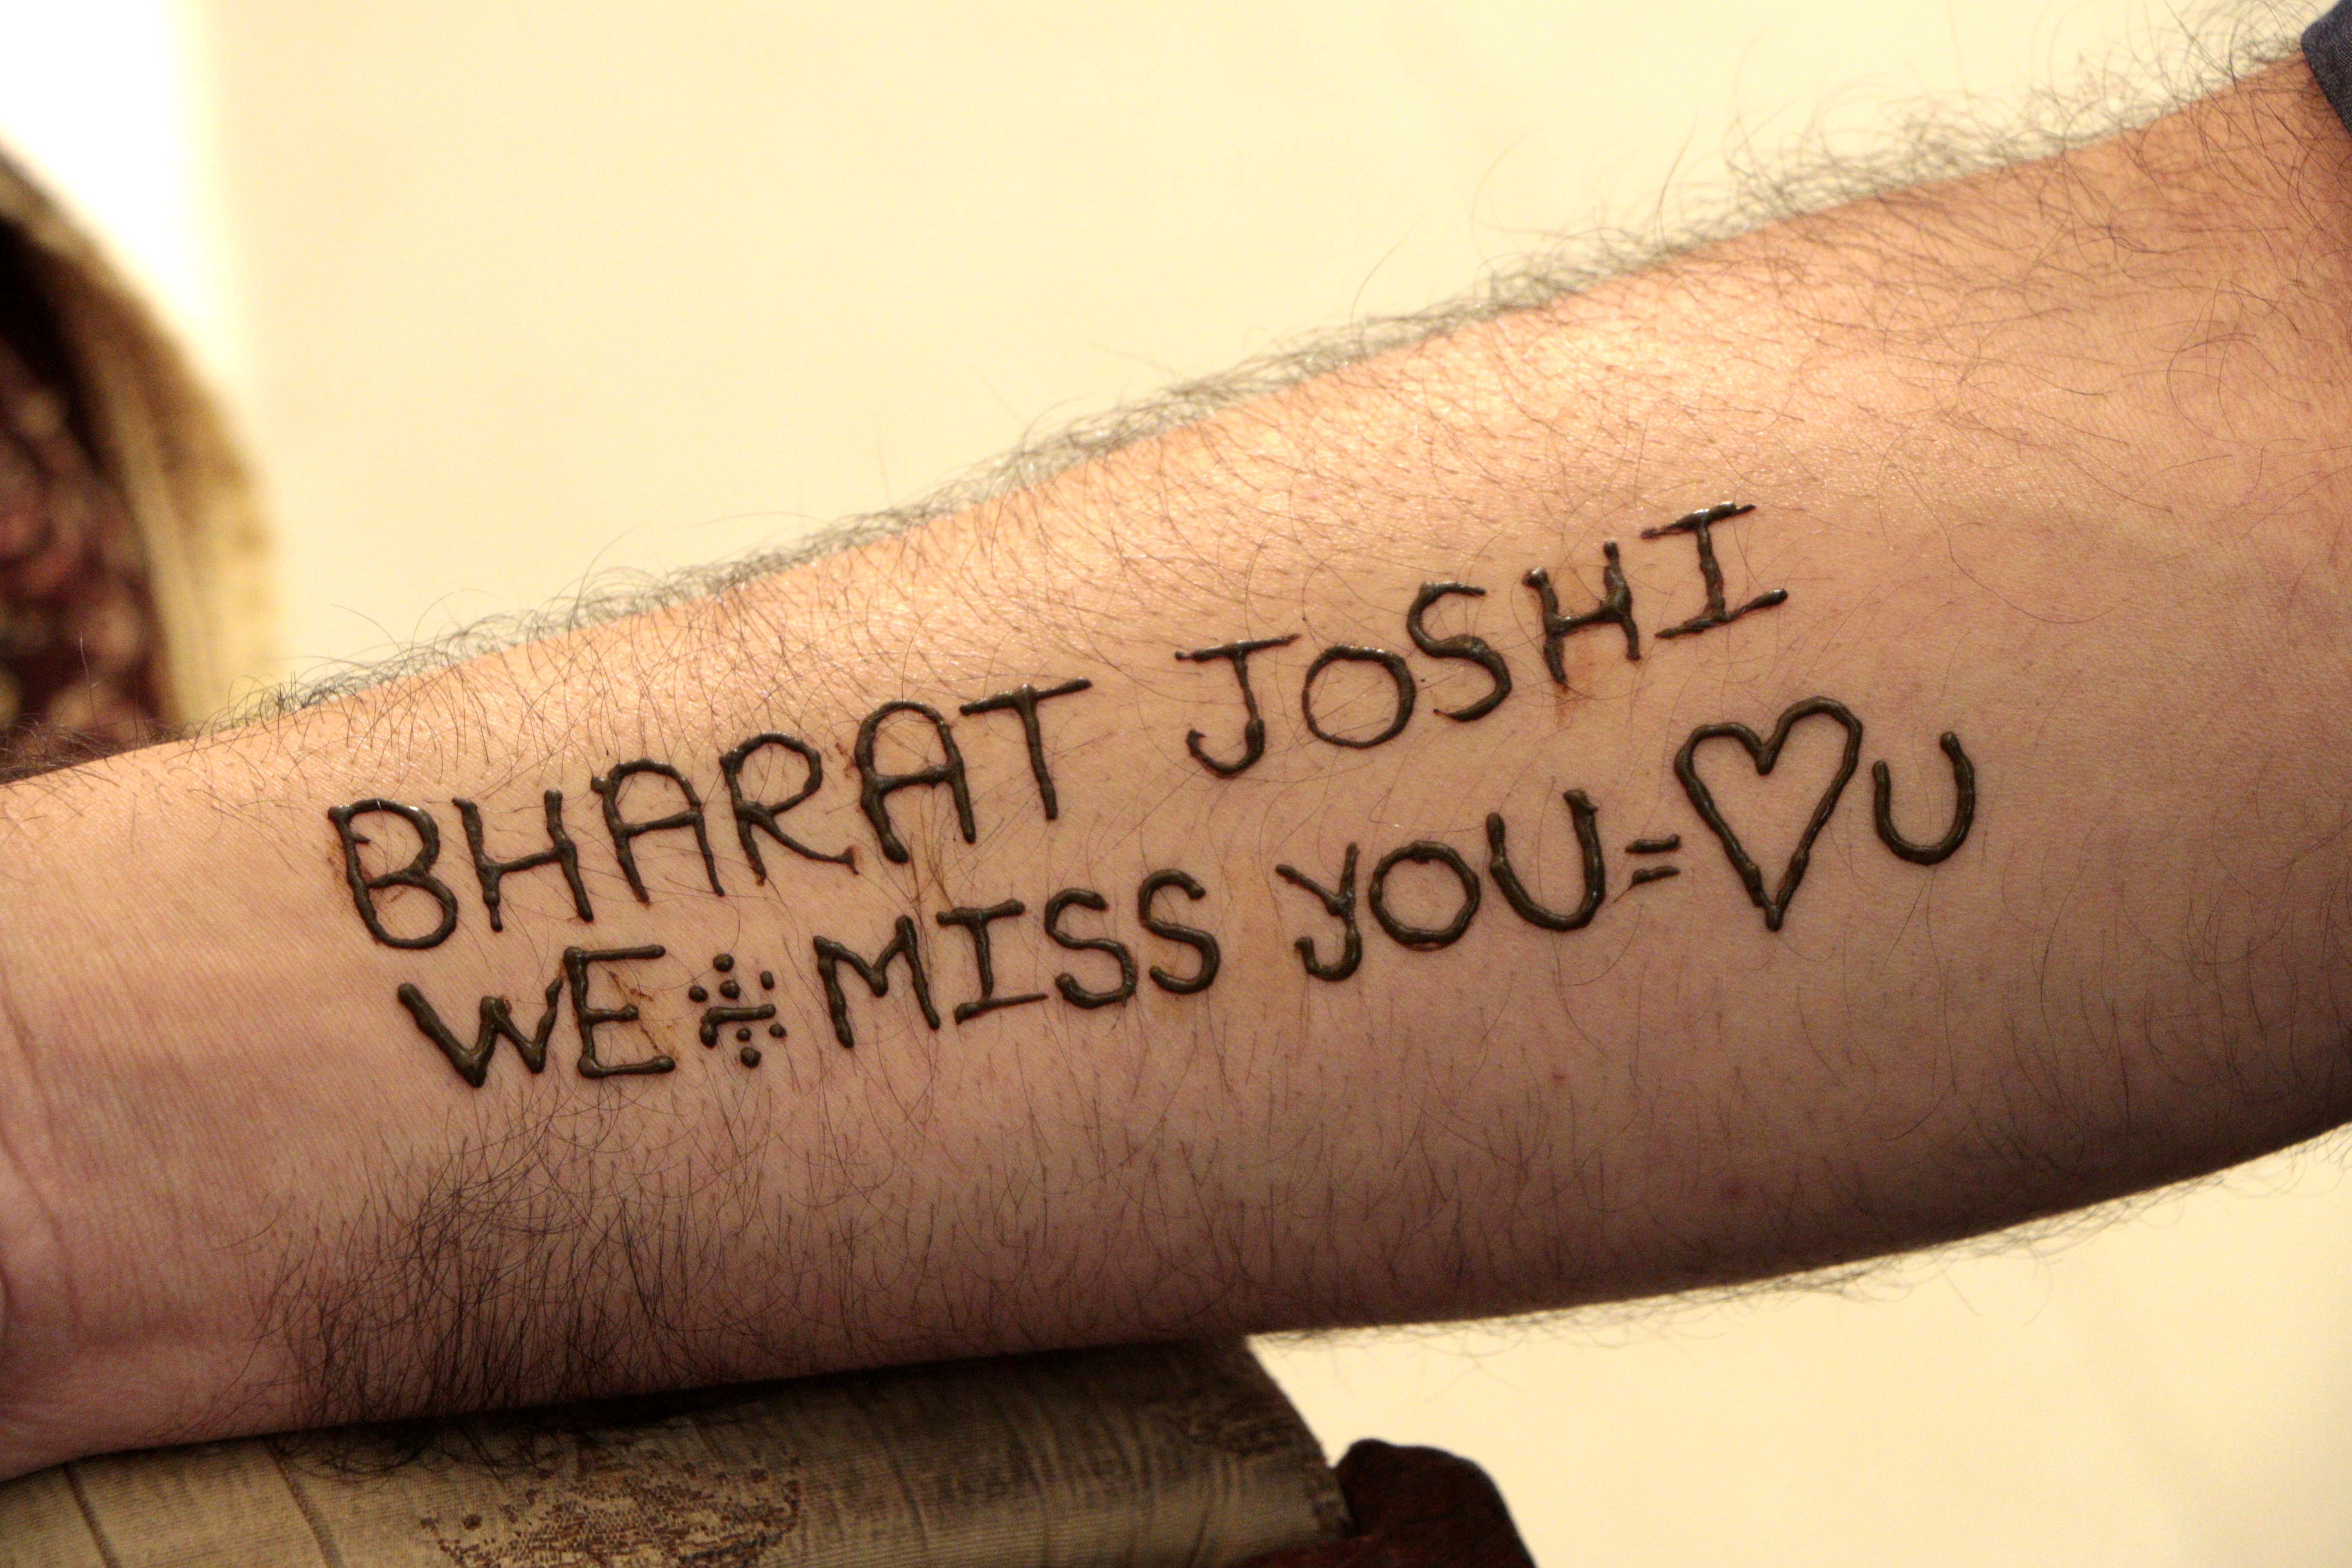 BHARAT JOSHI
WE MISS YOU=♡U